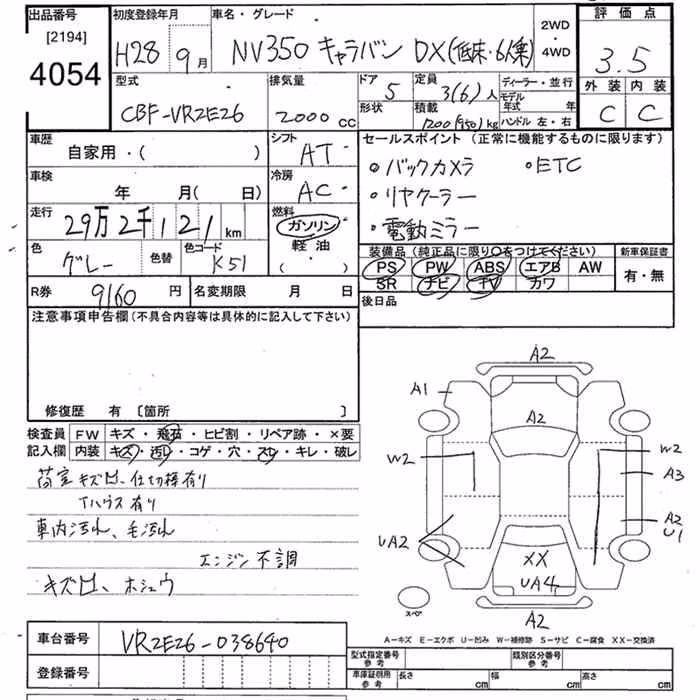 出品番号 初度登録年月 車名・グレード 2WD ・ 4WD 評価点
[2194]
4054 H28 9月 NV350 キャラバン DX(低床・6人乗) 3.5
型式 排気量 ドア 定員 ディーラー・並行 外装 内装
CBF-VR2E26 2000cc 5 3(6)人 モデル年式 年 C C
形状 積載 1200(950)kg ハンドル 左・右
車歴 シフト セールスポイント (正常に機能するものに限ります)
自家用・( ) AT ・バックカメラ ・ETC
車検 冷房 ・リヤクーラー
年 月( 日) AC ・電動ミラー
走行 燃料
29万2千121km ガソリン
軽油
( ・ )
色 色替 色コード 装備品 (純正品に限り〇をつけてください) 新車保証書
グレー K51 PS PW ABS エアB AW 有・無
SR ナビ TV カワ
R券 9160円 名変期限 月 日 後日品
注意事項申告欄(不具合内容等は具体的に記入して下さい)
修復歴 有 [箇所 ]
検査員 FW キズ・飛石・ヒビ割・リペア跡・×要
記入欄 内装 キズ・汚れ・コゲ・穴・スレ・キレ・破レ
荷室キズ凹、仕切棒有り
Tハウス有り
車内汚れ、毛汚れ
エンジン不調
キズ凹、ホシュウ
A2
A1
A2
W2 W2
A3
A2
U1
UA2
XX
UA4
A2
スペア
A-キズ E-エクボ U-凹み W-補修跡 S-サビ C-腐食 XX-交換済
車台番号 VR2E26-038640
型式指定番号 参考 類別区分番号 参考
登録番号 車庫証明用 参考 長さ cm 幅 cm 高さ cm